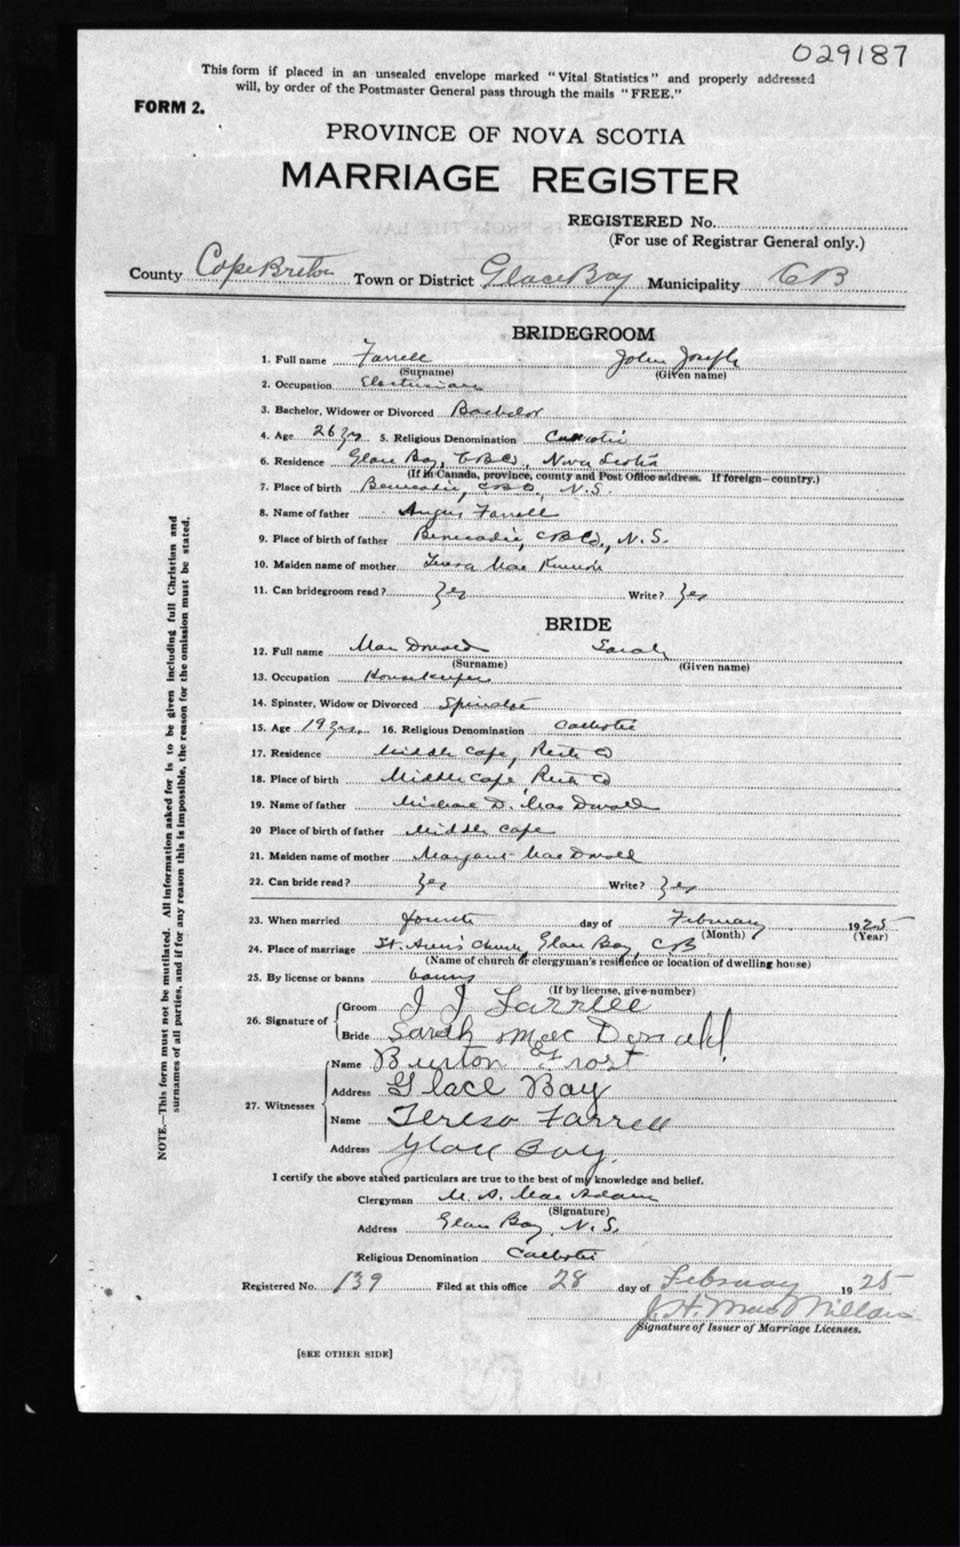 029187
This form if placed in an unsealed envelope marked "Vital Statistics" and properly addressed
will, by order of the Postmaster General pass through the mails "FREE."
FORM 2.
PROVINCE OF NOVA SCOTIA
MARRIAGE REGISTER
REGISTERED No.
(For use of Registrar General only.)
County Cape Breton Town or District Glace Bay Municipality CB
BRIDEGROOM
1. Full name Farrell John Joseph
(Surname) (Given name)
2. Occupation Electrician
3. Bachelor, Widower or Divorced Bachelor
4. Age 26 yrs. 5. Religious Denomination Catholic
6. Residence Glace Bay, CBCo, Nova Scotia
(If in Canada, province, county and Post Office address. If foreign—country.)
7. Place of birth Benacadie, CBCo, N.S.
8. Name of father Angus Farrell
9. Place of birth of father Benacadie, CBCo, N.S.
10. Maiden name of mother Teresa Mac
11. Can bridegroom read? Yes Write? Yes
BRIDE
12. Full name Mac Donald Sarah
(Surname) (Given name)
13. Occupation Housekeeper
14. Spinster, Widow or Divorced Spinster
15. Age 19 yrs. 16. Religious Denomination Catholic
17. Residence Middle Cape, Co
18. Place of birth Middle Cape, Co
19. Name of father Michael D. Mac Donald
20 Place of birth of father Middle Cape
21. Maiden name of mother Margaret Mac Donald
22. Can bride read? Yes Write? Yes
23. When married fourth day of February 1925
(Month) (Year)
24. Place of marriage St. Ann's Church, Glace Bay, CB
(Name of church or clergyman's residence or location of dwelling house)
25. By license or banns banns
(If by license, give number)
26. Signature of Groom J J Farrell
Bride Sarah Mac Donald
27. Witnesses Name Burton Frost
Address Glace Bay
Name Tereso Farrell
Address Glace Bay.
I certify the above stated particulars are true to the best of my knowledge and belief.
Clergyman M. A. Mac Adam
(Signature)
Address Glace Bay, N.S.
Religious Denomination Catholic
Registered No. 139 Filed at this office 28 day of February 1925
J. H. Mac Millan
Signature of Issuer of Marriage Licenses.
[SEE OTHER SIDE]
NOTE.—This form must not be mutilated. All information asked for is to be given including full Christian and
surnames of all parties, and if for any reason this is impossible, the reason for the omission must be stated.